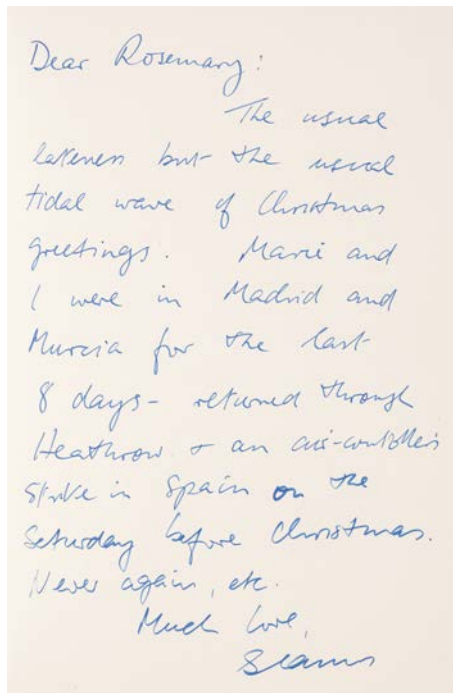 Dear Rosemary:
The usual
lateness but the usual
tidal wave of Christmas
greetings. Marie and
I were in Madrid and
Murcia for the last
8 days - returned through
Heathrow + an air-controller's
strike in Spain on the
Saturday before Christmas.
Never again, etc.
Much love,
Seamus